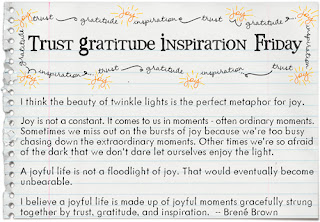 trust gratitude inspiration trust gratitude
Trust Gratitude Inspiration Friday
gratitude
inspiration trust gratitude inspiration trust
I think the beauty of twinkle lights is the perfect metaphor for joy.
Joy is not a constant. It comes to us in moments - often ordinary moments.
Sometimes we miss out on the bursts of joy because we're too busy
chasing down the extraordinary moments. Other times we're so afraid
of the dark that we don't dare let ourselves enjoy the light.
A joyful life is not a floodlight of joy. That would eventually become
unbearable.
I believe a joyful life is made up of joyful moments gracefully strung
together by trust, gratitude, and inspiration. -- Brené Brown